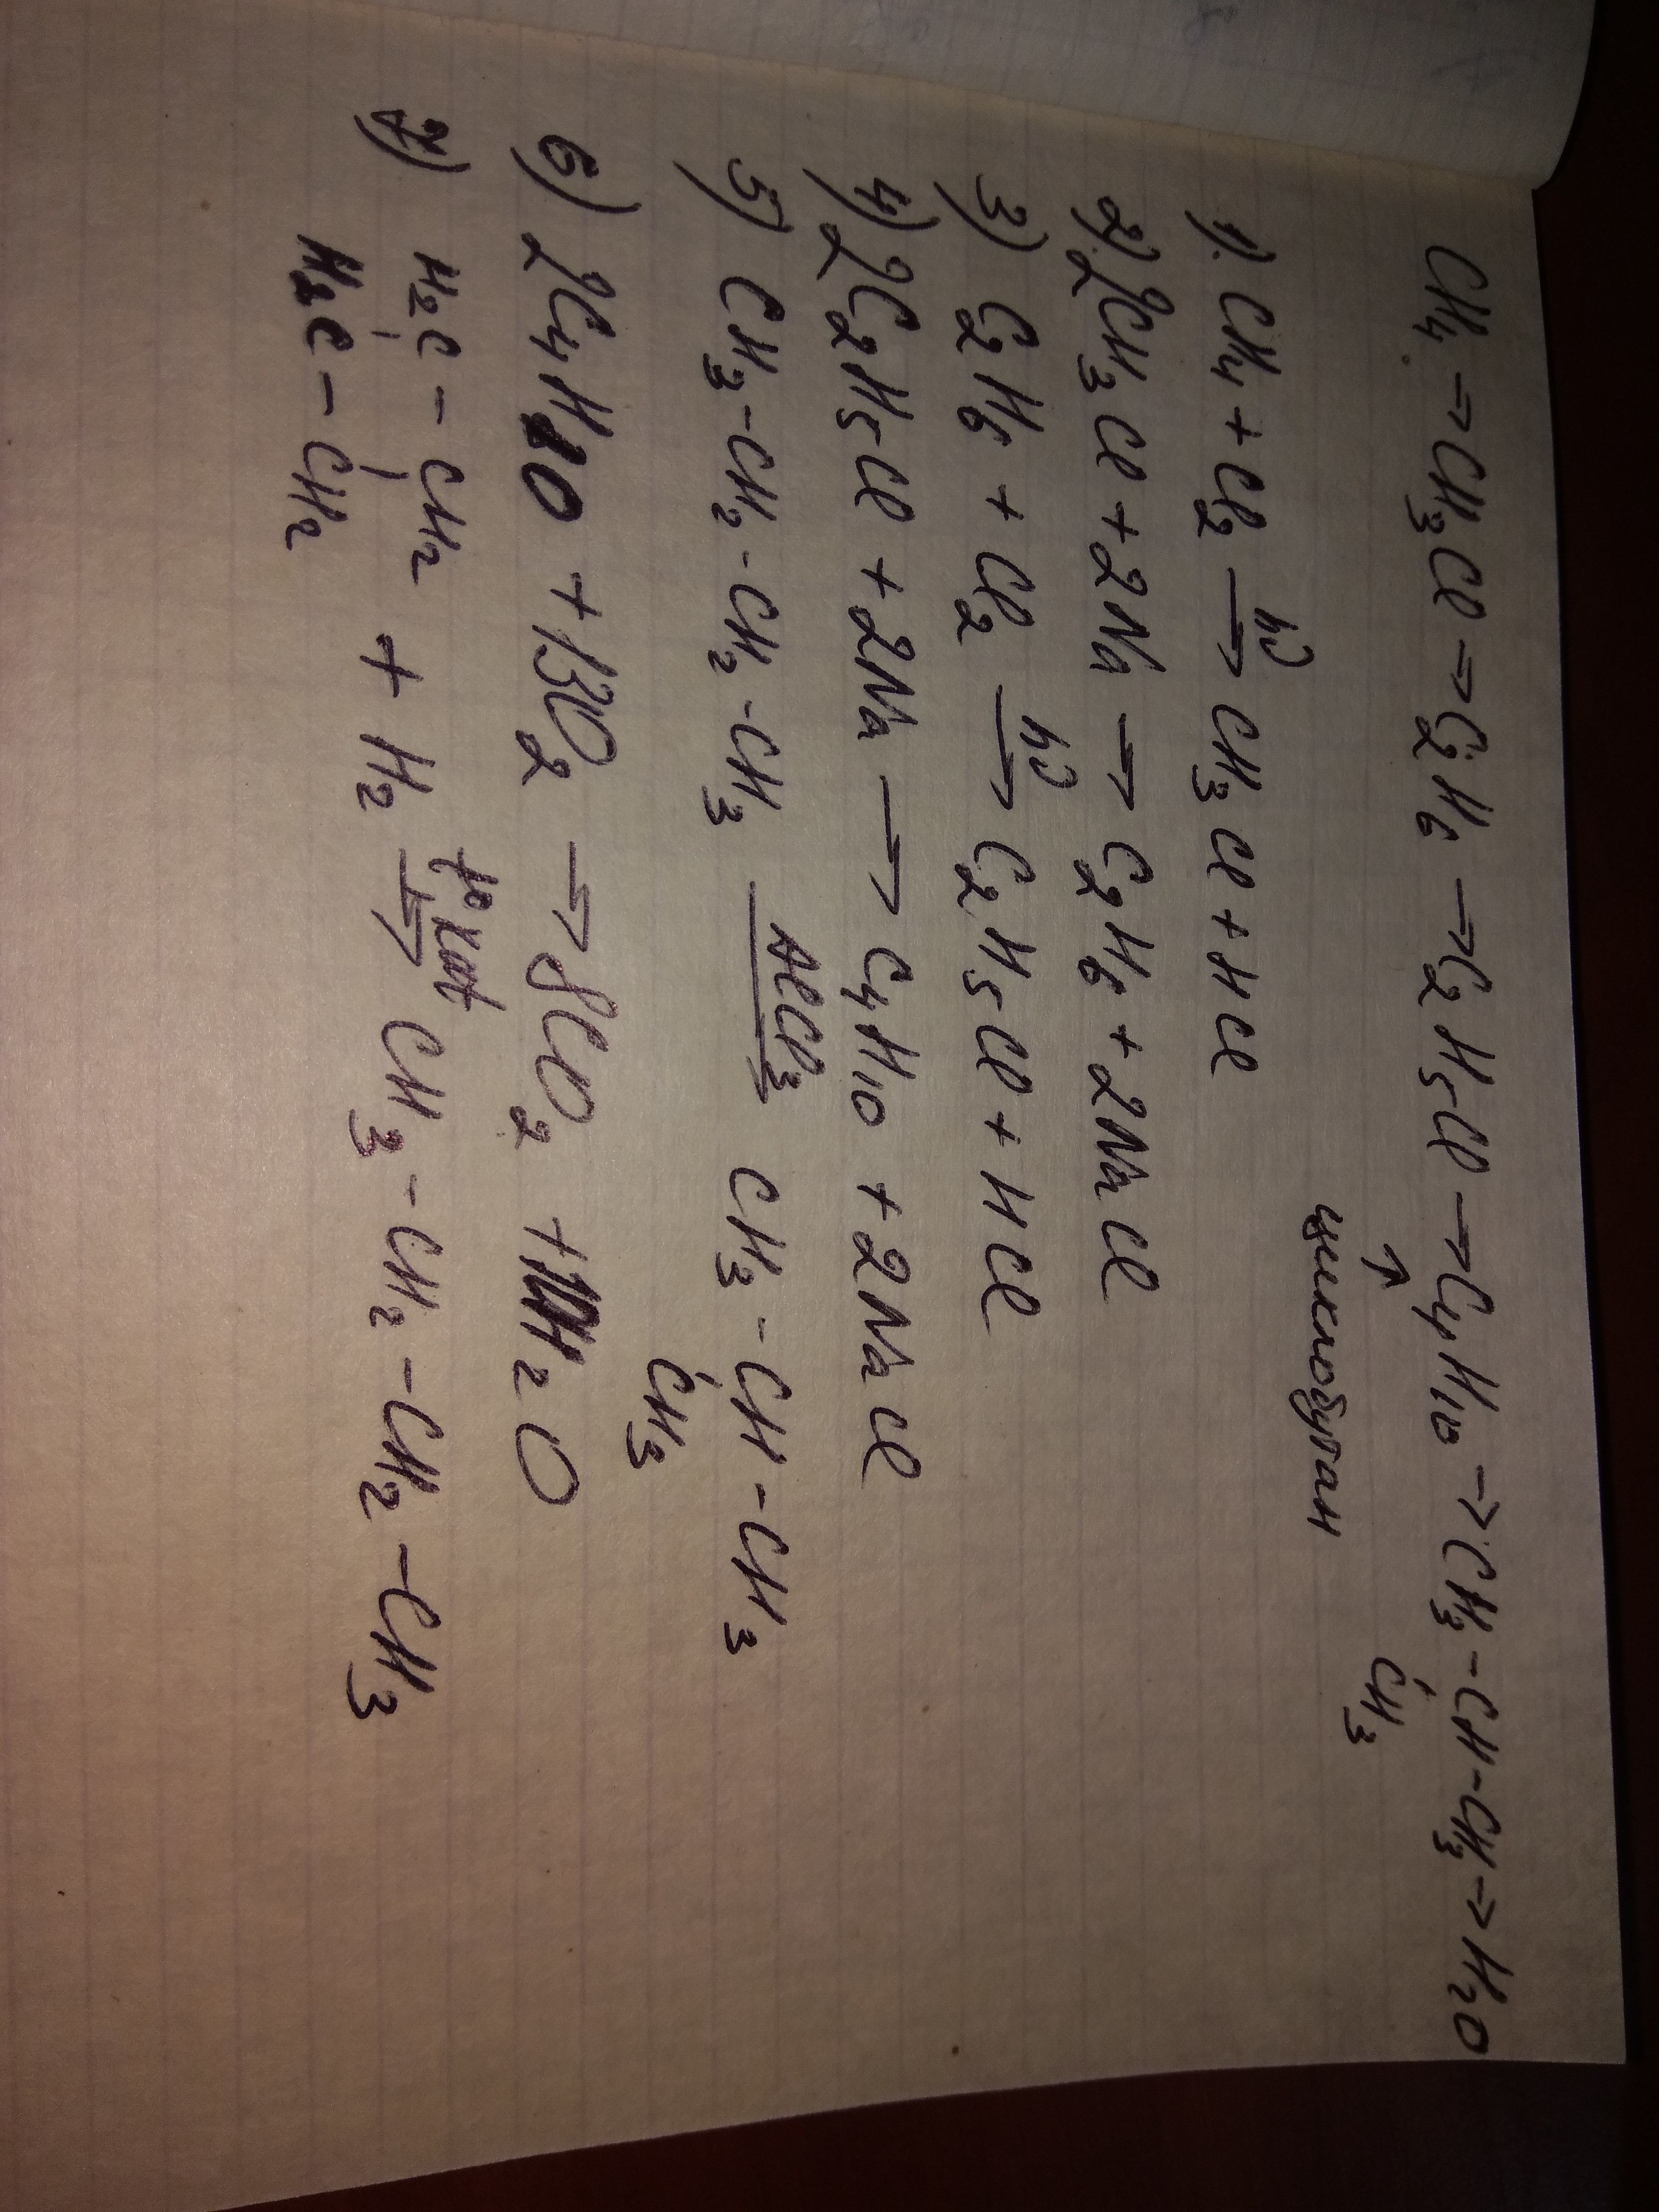 CH₄ → CH₃Cl → C₂H₆ → C₂H₅Cl → C₄H₁₀ → CH₃-CH-CH₃ → H₂O
↑ CH₃
циклобутан
1) CH₄ + Cl₂ hν→ CH₃Cl + HCl
2) 2CH₃Cl + 2Na → C₂H₆ + 2NaCl
3) C₂H₆ + Cl₂ hν→ C₂H₅Cl + HCl
4) 2C₂H₅Cl + 2Na → C₄H₁₀ + 2NaCl
5) CH₃-CH₂-CH₂-CH₃ AlCl₃→ CH₃-CH-CH₃
CH₃
6) 2C₄H₁₀ + 13O₂ → 8CO₂ + 10H₂O
7) H₂C-CH₂ + H₂ t° kat→ CH₃-CH₂-CH₂-CH₃
H₂C-CH₂